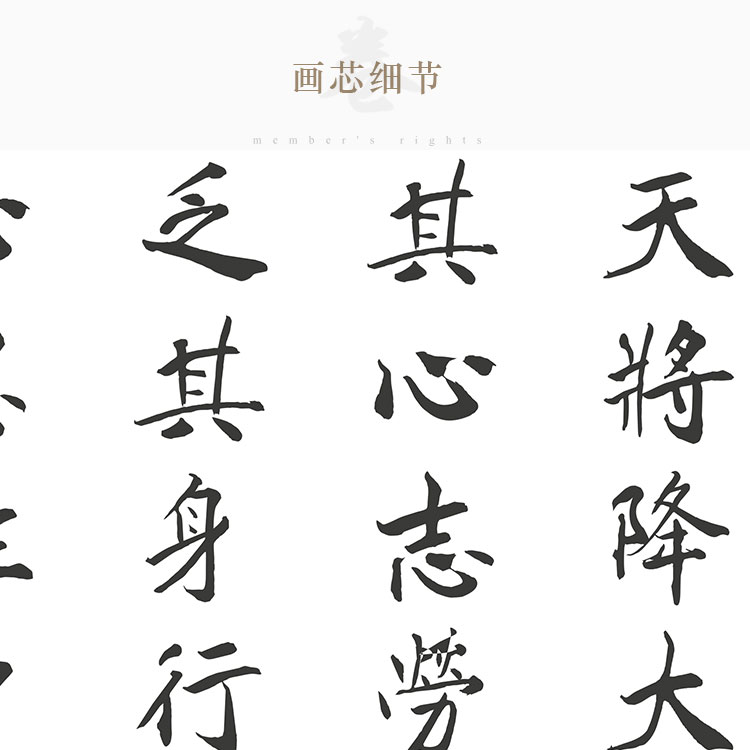 画芯细节
member's rights
天將降大
其心志勞
乏其身行